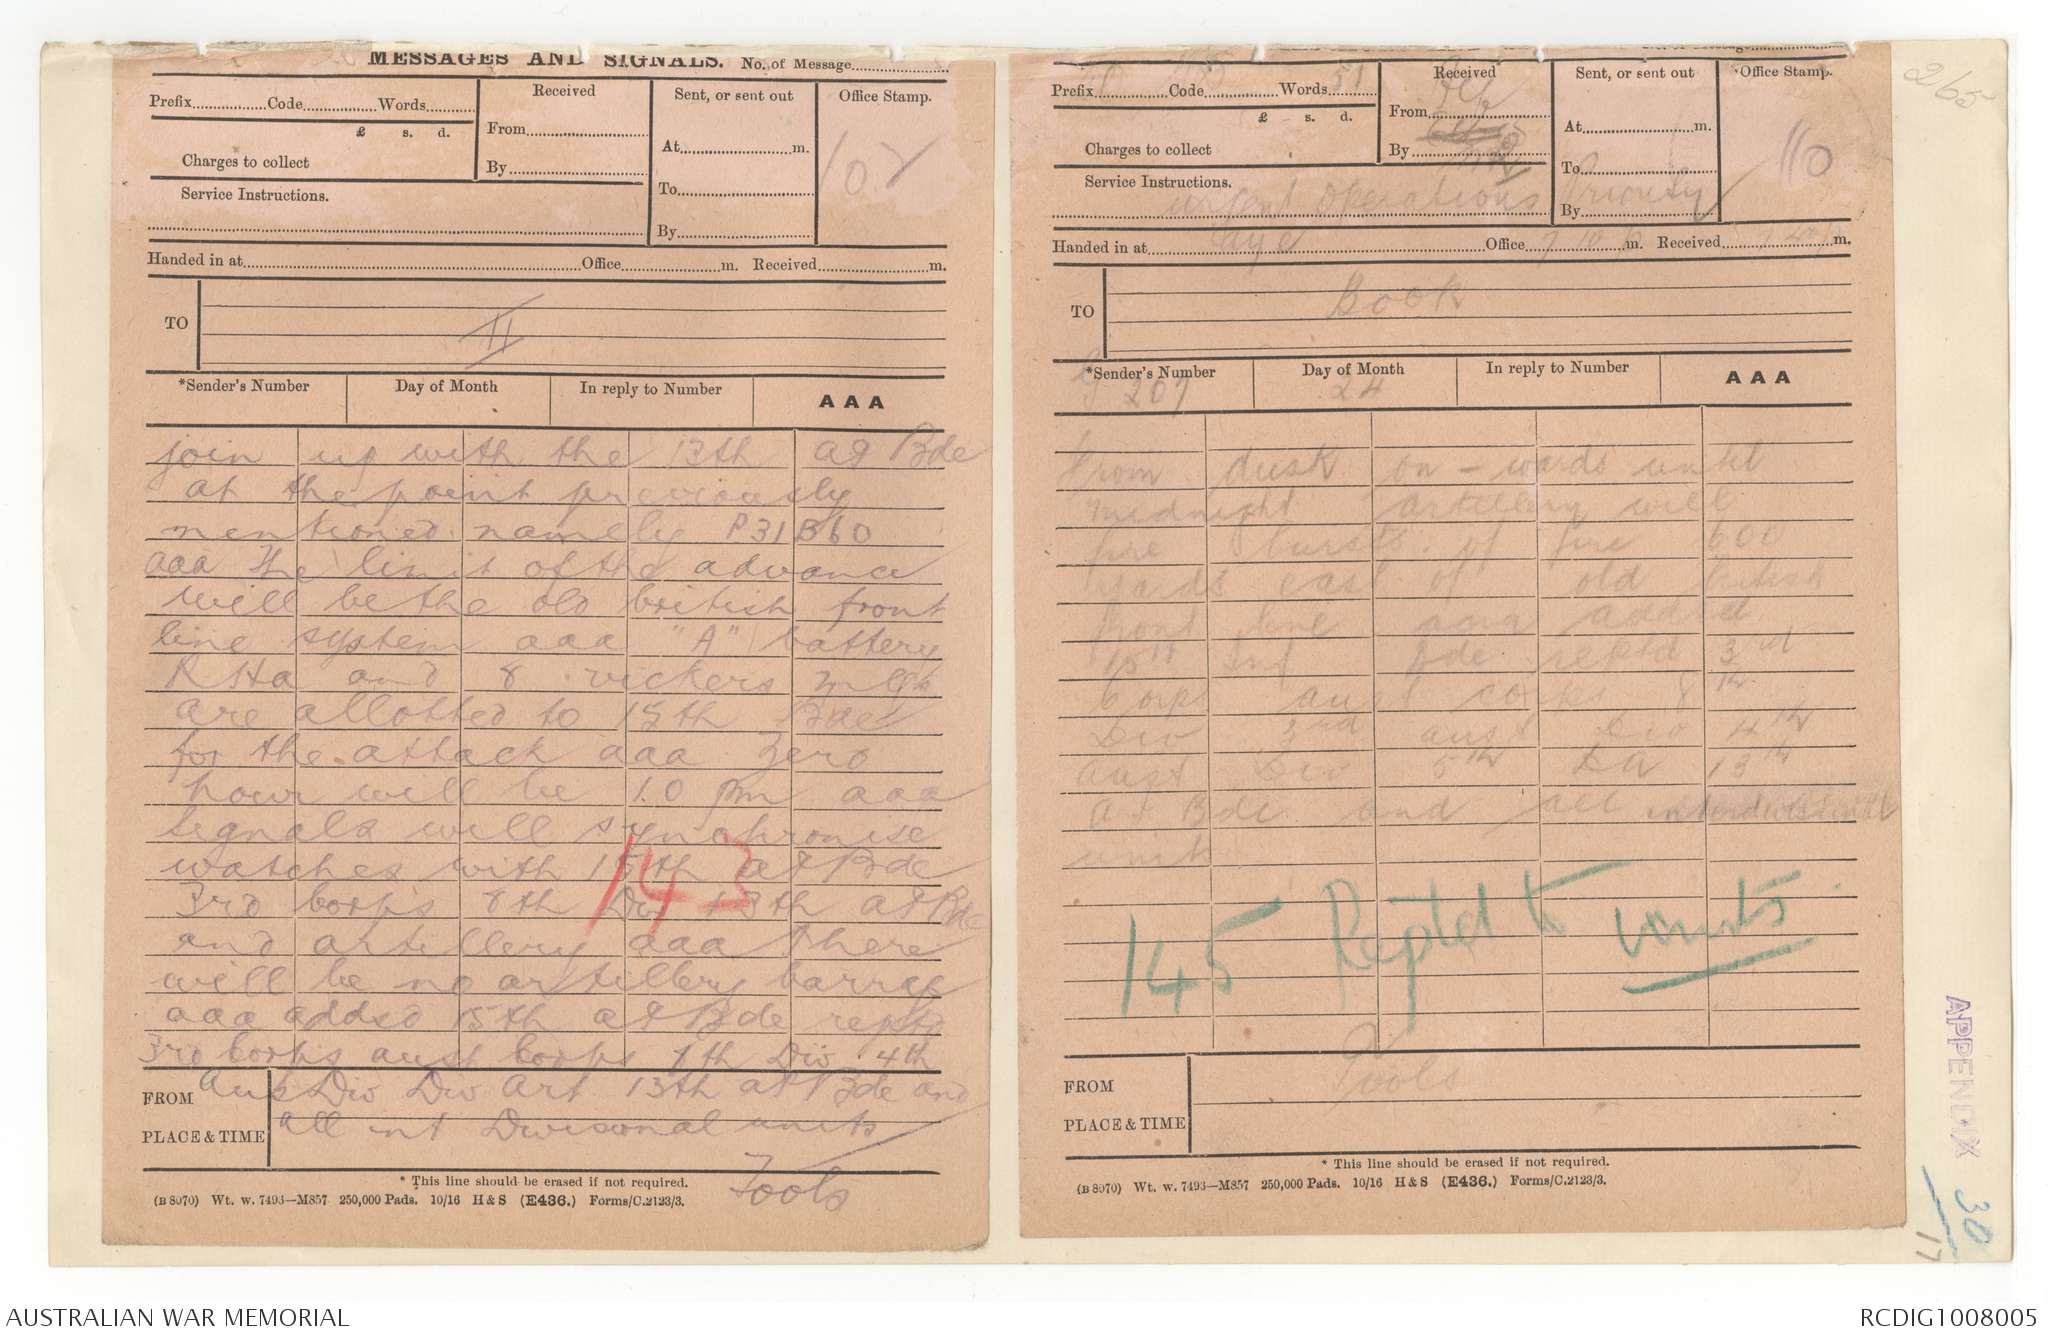 MESSAGES AND SIGNALS. No. of Message
Prefix Code Words
£ s. d.
Charges to collect
Service Instructions.
Received
From
By
Sent, or sent out
At m.
To
By
Office Stamp.
107
Handed in at Office m. Received m.
TO
II
*Sender's Number Day of Month In reply to Number AAA
join up with the 13th AI Bde
at the point previously
mentioned namely P31B60
aaa The limit of the advance
will be the old british front
line system aaa "A" battery
RHA and 8 vickers mgs
are allotted to 15th Bde
for the attack aaa Zero
hour will be 10 pm aaa
signals will synchronise
watches with 15th AI Bde
3rd Corps 8th Div 13th AI Bde
and artillery aaa There
will be no artillery barrage
aaa added 15th AI Bde reptd
3rd Corps aust Corps 8th Div 4th
143
FROM Aus Div Div Art 13th AI Bde and
PLACE & TIME all int Divisional units
Fools
* This line should be erased if not required.
(B 8970) Wt. w. 7493—M857 250,000 Pads. 10/16 H & S (E436.) Forms/C.2123/3.
265
Prefix Code Words 51
£ s. d.
Charges to collect
Service Instructions.
urgent Operations Priority
Received
From
By
Sent, or sent out
At m.
To
By
Office Stamp.
110
Handed in at Office 7 10 p m. Received m.
TO Book
*Sender's Number Day of Month In reply to Number AAA
G 207 24
From dusk on-wards until
midnight artillery will
fire bursts of fire 600
yards east of old british
front line aaa added
15th Inf Bde reptd 3rd
Corps aust corps 8th
Div 3rd aust Div 4th
aust Div 5th DA 13th
AI Bde and all interdivisional
units
145 Reptd to units
FROM Fools
PLACE & TIME
* This line should be erased if not required.
(B 8970) Wt. w. 7493—M857 250,000 Pads. 10/16 H & S (E436.) Forms/C.2123/3.
APPENDIX 30
17
AUSTRALIAN WAR MEMORIAL
RCDIG1008005